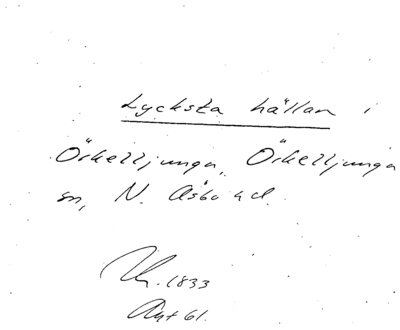 Lycksta hällan i
Örkelljunga, Örkelljunga
sn, N. Åsbo hd.
1833
61.